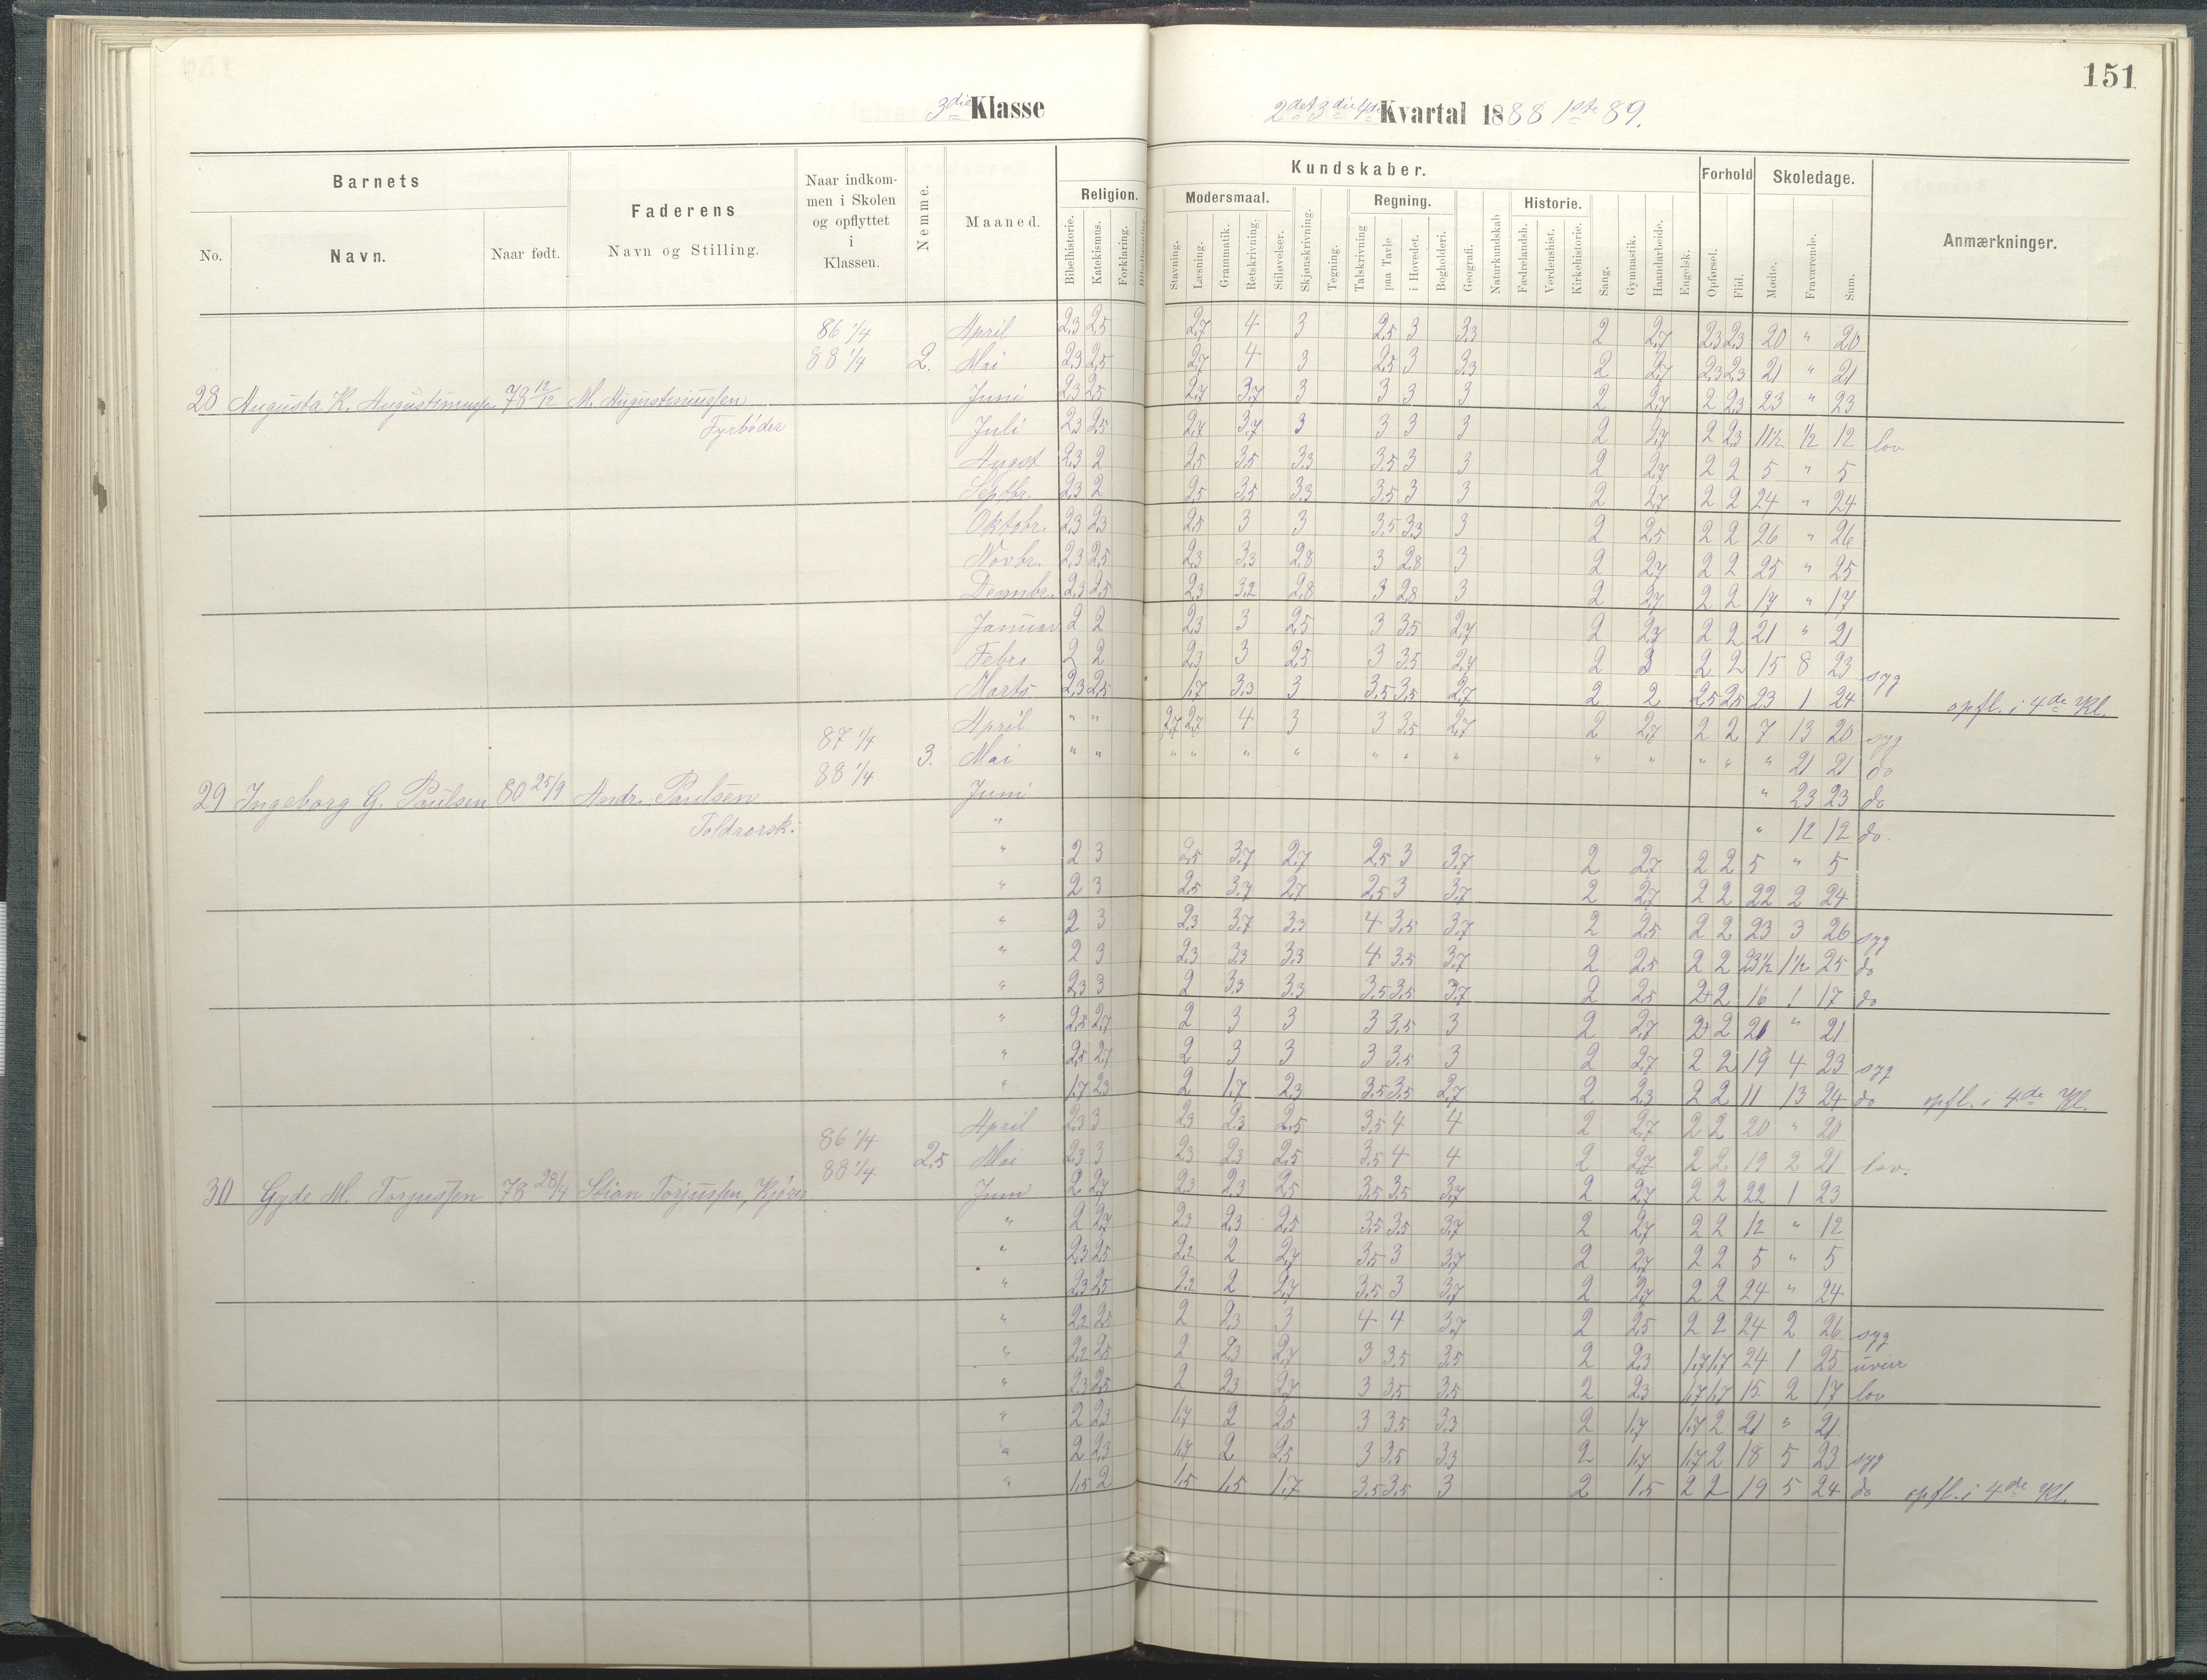 151
3die Klasse
2det 3die 4de Kvartal 1888 1ste 89.
Barnets
Faderens
Naar indkommen i Skolen og opflyttet i Klassen.
Nemme.
Maaned.
Kundskaber.
Forhold
Skoledage.
Anmærkninger.
No.
Navn.
Naar født.
Navn og Stilling.
Religion.
Modersmaal.
Regning.
Historie.
Bibelhistorie.
Katekismus.
Forklaring.
Stavning.
Læsning.
Grammatik.
Retskrivning.
Stiløvelser.
Skjønskrivning.
Tegning.
Talskrivning
paa Tavle
i Hovedet.
Bogholderi.
Geografi.
Naturkundskab
Fædrelandsh.
Verdenshist.
Kirkehistorie.
Sang.
Gymnastik.
Haandarbeide.
Engelsk.
Opførsel.
Flid.
Møite.
Fraværende.
Sum.
86 1/4 April 2,3 2,5 2,7 4 3 2,5 3 3,3 2 2,7 2,3 2,3 20 " 20
88 1/4 2. Mai 2,3 2,5 2,7 4 3 2,5 3 3,3 2 2,7 2,3 2,3 21 " 21
28 Augusta K. Augustinussen 78 12/12 M. Augustinussen Juni 2,3 2,5 2,7 3,7 3 3 3 3 2 2,7 2 2,3 23 " 23
Fyrbøder Juli 2,3 2,5 2,7 3,7 3 3 3 3 2 2,7 2 2,3 11 1/2 1/2 12 lov
August 2,3 2 2,5 3,5 3,3 3,5 3 3 2 2,7 2 2 5 " 5
Septbr. 2,3 2 2,5 3,5 3,3 3,5 3 3 2 2,7 2 2 24 " 24
Oktobr. 2,3 2,3 2,5 3 3 3,5 3,3 3 2 2,5 2 2 26 " 26
Novbr. 2,3 2,5 2,3 3,3 2,8 3 2,8 3 2 2,7 2 2 25 " 25
Decmbr. 2,3 2,5 2,3 3,2 2,8 3 2,8 3 2 2,7 2 2 17 " 17
Januar 2 2 2,3 3 2,5 3 3,5 2,7 2 2,7 2 2 21 " 21
Febr. 2 2 2,3 3 2,5 3 3,5 2,7 2 3 2 2 15 8 23 syg
Marts 2,3 2,5 1,7 3,3 3 3,5 3,5 2,7 2 2 2,5 2,5 23 1 24 opfl. i 4de Kl.
April " " 2,7 2,7 4 3 3 3,5 2,7 2 2,7 2 2 7 13 20 syg
87 1/4 3. Mai " " " " " " " " " " " " " " 21 21 do
88 1/4
29 Ingeborg G. Paulsen 80 25/9 Andr. Paulsen Juni " 23 23 do
Toldrorsk. " " 12 12 do.
" 2 3 2,5 3,7 2,7 2,5 3 3,7 2 2,7 2 2 5 " 5
" 2 3 2,5 3,7 2,7 2,5 3 3,7 2 2,7 2 2 22 2 24
" 2 3 2,3 3,7 3,3 4 3,5 3,7 2 2,5 2 2 23 3 26 syg
" 2 3 2,3 3,3 3,3 4 3,5 3,7 2 2,5 2 2 23 1/2 1 1/2 25 do
" 2,3 3 2 3,3 3,3 3,5 3,5 3,7 2 2,5 2+ 2 16 1 17 do
" 2,5 2,7 2 3 3 3 3,5 3 2 2,7 2+ 2 21 " 21
" 2,5 2,7 2 3 3 3 3,5 3 2 2,7 2 2 19 4 23 syg
" 1,7 2,3 2 1,7 2,3 3,5 3,5 2,7 2 2,3 2 2 11 13 24 do opfl. i 4de Kl.
April 2,3 3 2,3 2,3 2,5 3,5 4 4 2 2,7 2 2 20 " 20
86 1/4 2,5 Mai 2,3 3 2,3 2,3 2,5 3,5 4 4 2 2,7 2 2 19 2 21 lov.
88 1/4
30 Gyde M. Torjussen 78 28/4 Stian Torjussen, Kjører Juni 2 2,7 2,3 2,3 2,5 3,5 3,5 3,7 2 2,7 2 2 22 1 23
" 2 2,7 2,3 2,3 2,5 3,5 3,5 3,7 2 2,7 2 2 12 " 12
" 2,3 2,5 2,2 2 2,7 3,5 3 3,7 2 2,7 2 2 5 " 5
" 2,3 2,5 2,2 2 2,7 3,5 3 3,7 2 2,7 2 2 24 " 24
" 2,2 2,5 2 2,3 3 4 4 3,7 2 2,5 2 2 24 2 26 syg
" 2,2 2,5 2 2,3 2,7 3 3,5 3,5 2 2,3 1,7 1,7 24 1 25 uveir
" 2,3 2,5 2 2,3 2,7 3 3,5 3,5 2 2,3 1,7 1,7 15 2 17 lov
" 2 2,3 1,7 2 2,5 3 3,5 3,3 2 1,7 1,7 2 21 " 21
" 2 2,3 1,7 2 2,5 3 3,5 3,3 2 1,7 1,7 2 18 5 23 syg
" 1,5 2 1,5 1,5 1,7 3,5 3,5 3 2 1,5 2 2 19 5 24 do opfl. i 4de Kl.